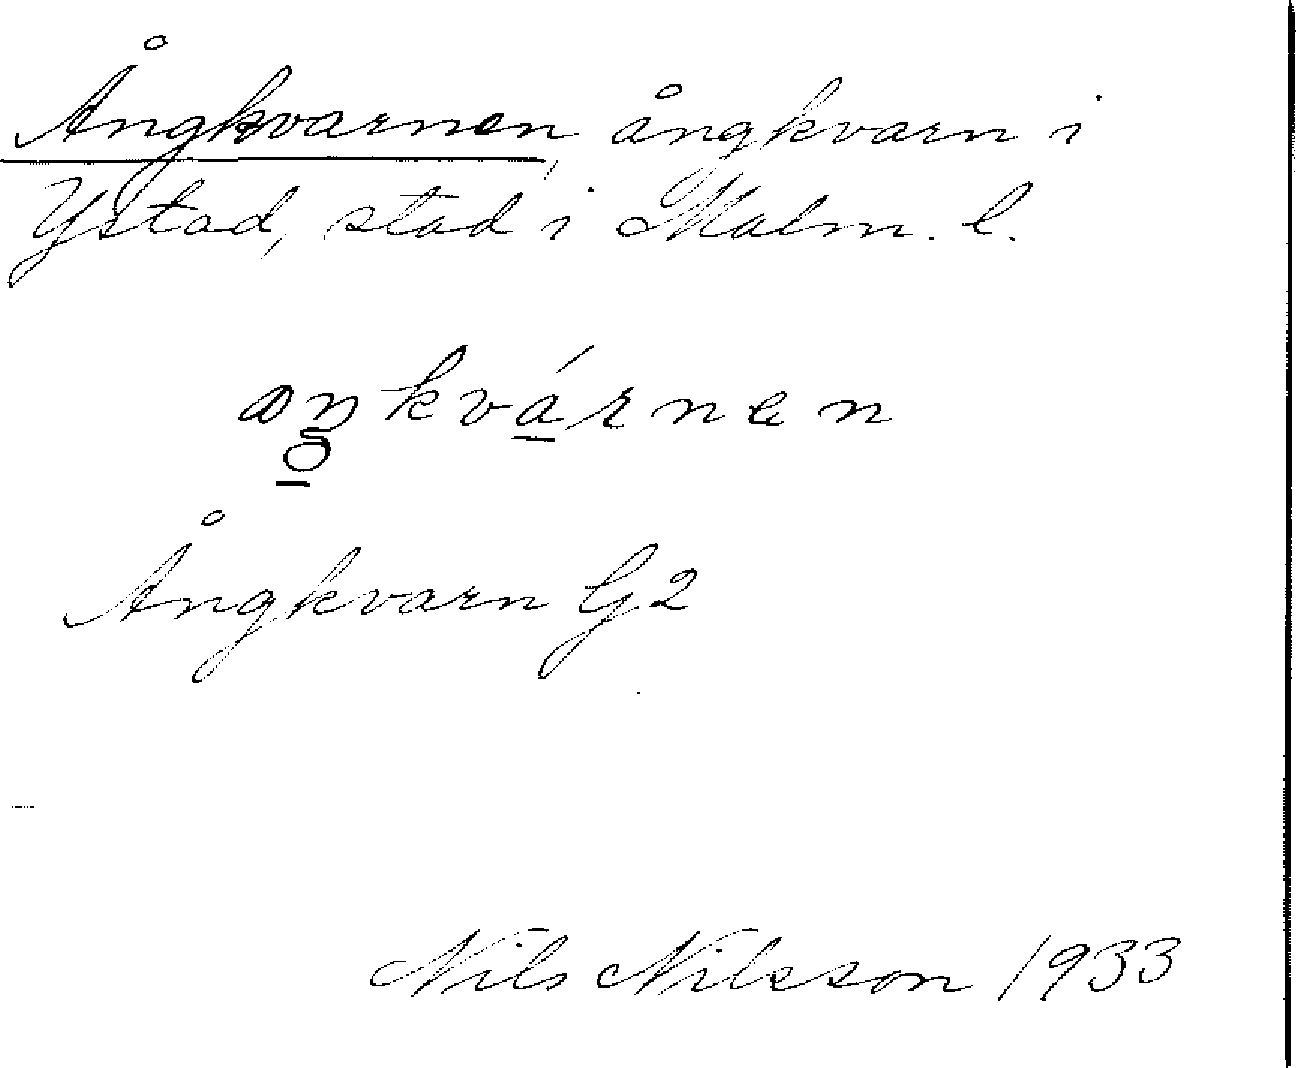 Ångkvarnen, ångkvarn i
Ystad, stad i Malm. l.
aŋkvárnen
Ångkvarn G2
Nils Nilsson 1933